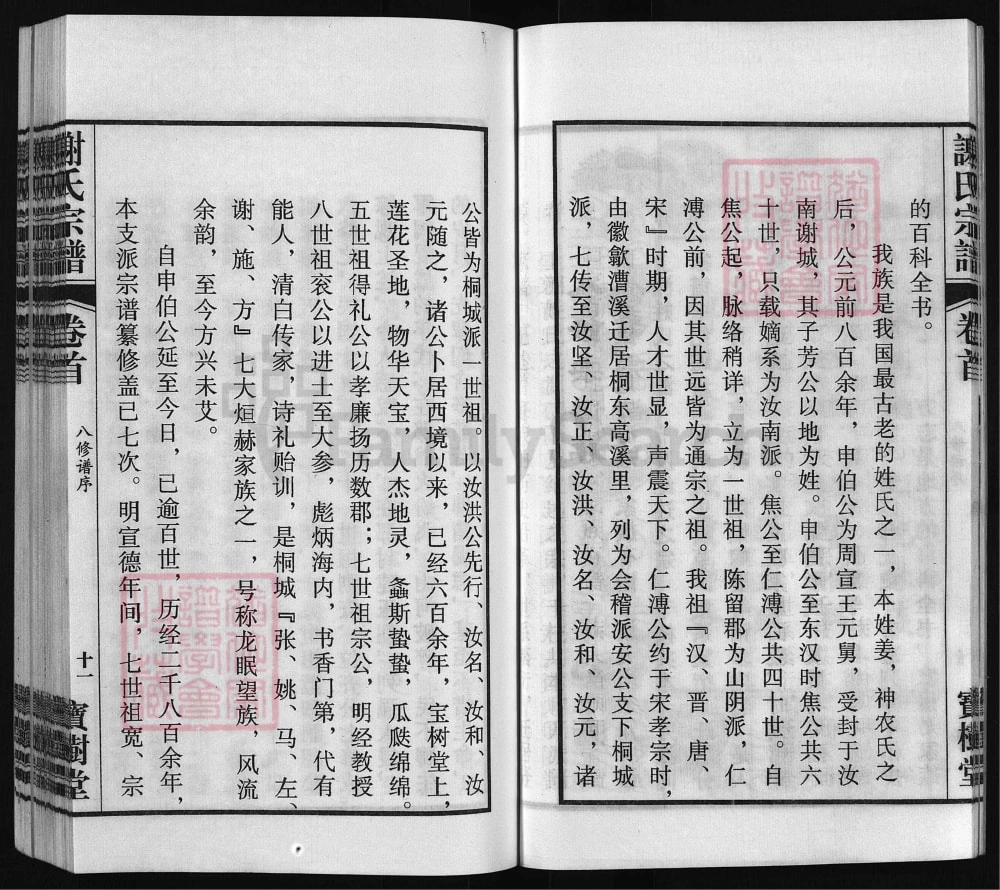 的百科全书。
我族是我国最古老的姓氏之一，本姓姜，神农氏之
后，公元前八百余年，申伯公为周宣王元舅，受封于汝
南谢城，其子芳公以地为姓。申伯公至东汉时焦公共六
十世，只载嫡系为汝南派。焦公至仁溥公共四十世。自
焦公起，脉络稍详，立为一世祖，陈留郡为山阴派，仁
溥公前，因其世远皆为通宗之祖。我祖『汉、晋、唐、
宋』时期，人才世显，声震天下。仁溥公约于宋孝宗时，
由徽歙漕溪迁居桐东高溪里，列为会稽派安公支下桐城
派，七传至汝坚、汝正、汝洪、汝名、汝和、汝元，诸
公皆为桐城派一世祖。以汝洪公先行、汝名、汝和、汝
元随之，诸公卜居西境以来，已经六百余年，宝树堂上，
莲花圣地，物华天宝，人杰地灵，螽斯蛰蛰，瓜瓞绵绵。
五世祖得礼公以孝廉扬历数郡；七世祖宗公，明经教授
八世祖衮公以进士至大参，彪炳海内，书香门第，代有
能人，清白传家，诗礼贻训，是桐城『张、姚、马、左、
谢、施、方』七大烜赫家族之一，号称龙眠望族，风流
余韵，至今方兴未艾。
自申伯公延至今日，已逾百世，历经二千八百余年，
本支派宗谱纂修盖已七次。明宣德年间，七世祖宽、宗
謝氏宗譜
卷首
八修谱序
十一
寶樹堂
謝氏宗譜
卷首
寶樹堂
FamilySearch